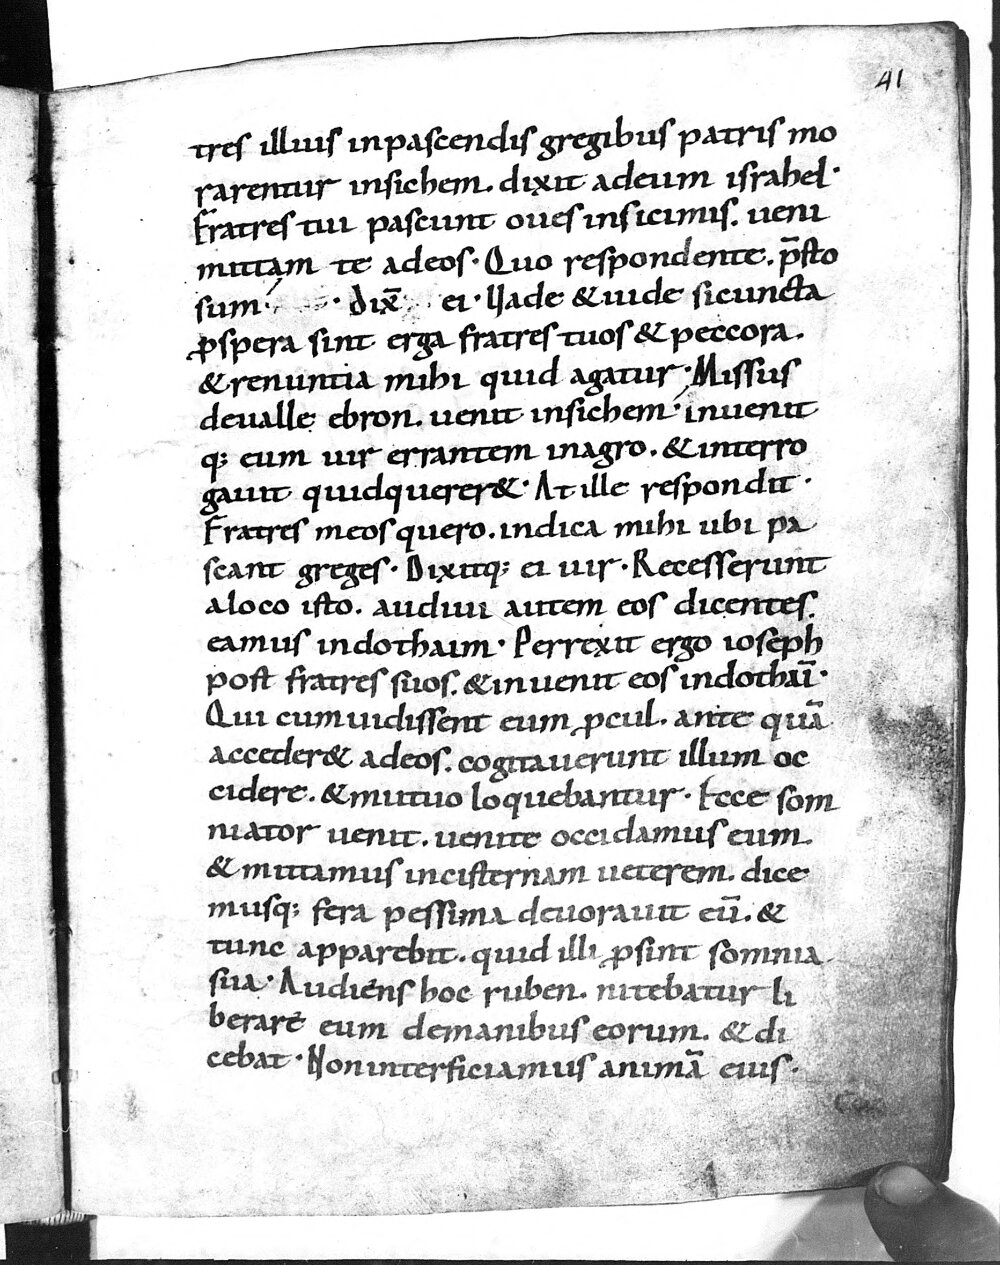 41
tres illius inpascendis gregibus patris mo
rarentur insichem. dixit adeum israhel·
Fratres tui pascunt oues insicimis. ueni
mittam te adeos· Quo respondente. p̄sto
sum· dix̄ ei· Uade &uide sicuncta
ꝓspera sint erga fratres tuos & peccora.
& renuntia mihi quid agatur· Missus
deualle ebron. uenit insichem· inuenit
q; eum uir errantem inagro. & interro
gauit quidquerer&· At ille respondit·
Fratres meos quero. indica mihi ubi pa
scant greges· Dixitq; ei uir· Recesserunt
aloco isto. audiui autem eos dicentes.
eamus indothaim· Perrexit ergo ioseph
post fratres suos. & inuenit eos indothaī·
Qui cumuidissent eum ꝓcul. ante quā
acceder& adeos. cogitauerunt illum oc
cidere. & mutuo loquebantur· Ecce som
niator uenit. uenite occidamus eum.
& mittamus incisternam ueterem. dice
musq; fera pessima deuorauit eū. &
tunc apparebit. quid illi ꝓsint somnia
sua· Audiens hoc ruben. nitebatur li
berare eum demanibus eorum. & di
cebat· Noninterficiamus animā eius·